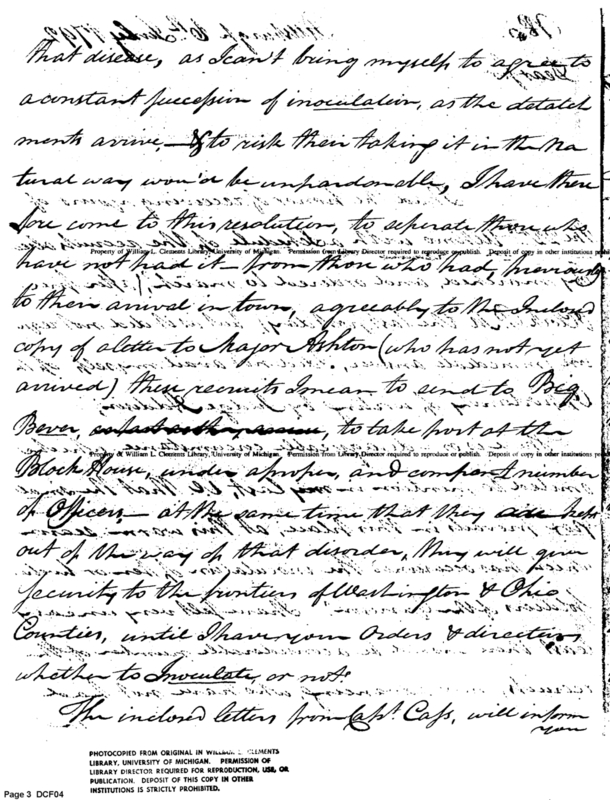 that disease, as I can't bring myself to agree to
a constant succession of inoculation, as the detatch
ments arrive, & to risk their taking it in the na
tural way wou'd be unpardonable, I have there
fore come to this resolution, to seperate those who
Property of William L. Clements Library, University of Michigan. Permission from Library Director required to reproduce or publish. Deposit of copy in other institutions prohi
have not had it from those who had, previously
to their arrival in town, agreeably to the Inclosed
copy of a letter to Major Ashton (who has not yet
arrived) these recruits I mean to send to Big
Bever, to take post at the
Property of William L. Clements Library, University of Michigan. Permission from Library Director required to reproduce or publish. Deposit of copy in other institutions prohi
Block House, under a proper, and competent number
of Officers, at the same time that they are kept
out of the way of that disorder, they will give
security to the frontiers of Washington & Ohio
Counties, until I have your Orders & directions
whether to Inoculate, or not
The inclosed letters from Capt. Cass, will inform
you
PHOTOCOPIED FROM ORIGINAL IN WILLIAM L. CLEMENTS
LIBRARY, UNIVERSITY OF MICHIGAN. PERMISSION OF
LIBRARY DIRECTOR REQUIRED FOR REPRODUCTION, USE, OR
PUBLICATION. DEPOSIT OF THIS COPY IN OTHER
INSTITUTIONS IS STRICTLY PROHIBITED.
Page 3 DCF04